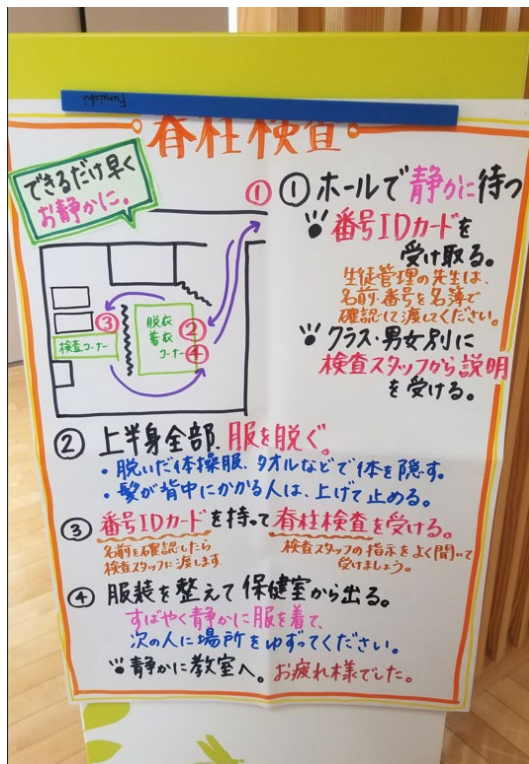 Funichi
脊柱検査
できるだけ早く
お静かに。
①
① ホールで静かに待つ
番号IDカードを
受け取る。
生徒管理の先生は、
名前・番号を名簿で
確認して渡してください。
クラス・男女別に
検査スタッフから説明
を受ける。
③
検査コーナー
脱衣
着衣
コーナー
②
④
② 上半身全部、服を脱ぐ。
・脱いだ体操服、タオルなどで体を隠す。
・髪が背中にかかる人は、上げて止める。
③ 番号IDカードを持って脊柱検査を受ける。
名前を確認したら
検査スタッフに渡します
検査スタッフの指示をよく聞いて
受けましょう。
④ 服装を整えて保健室から出る。
すばやく静かに服を着て、
次の人に場所をゆずってください。
静かに教室へ。お疲れ様でした。